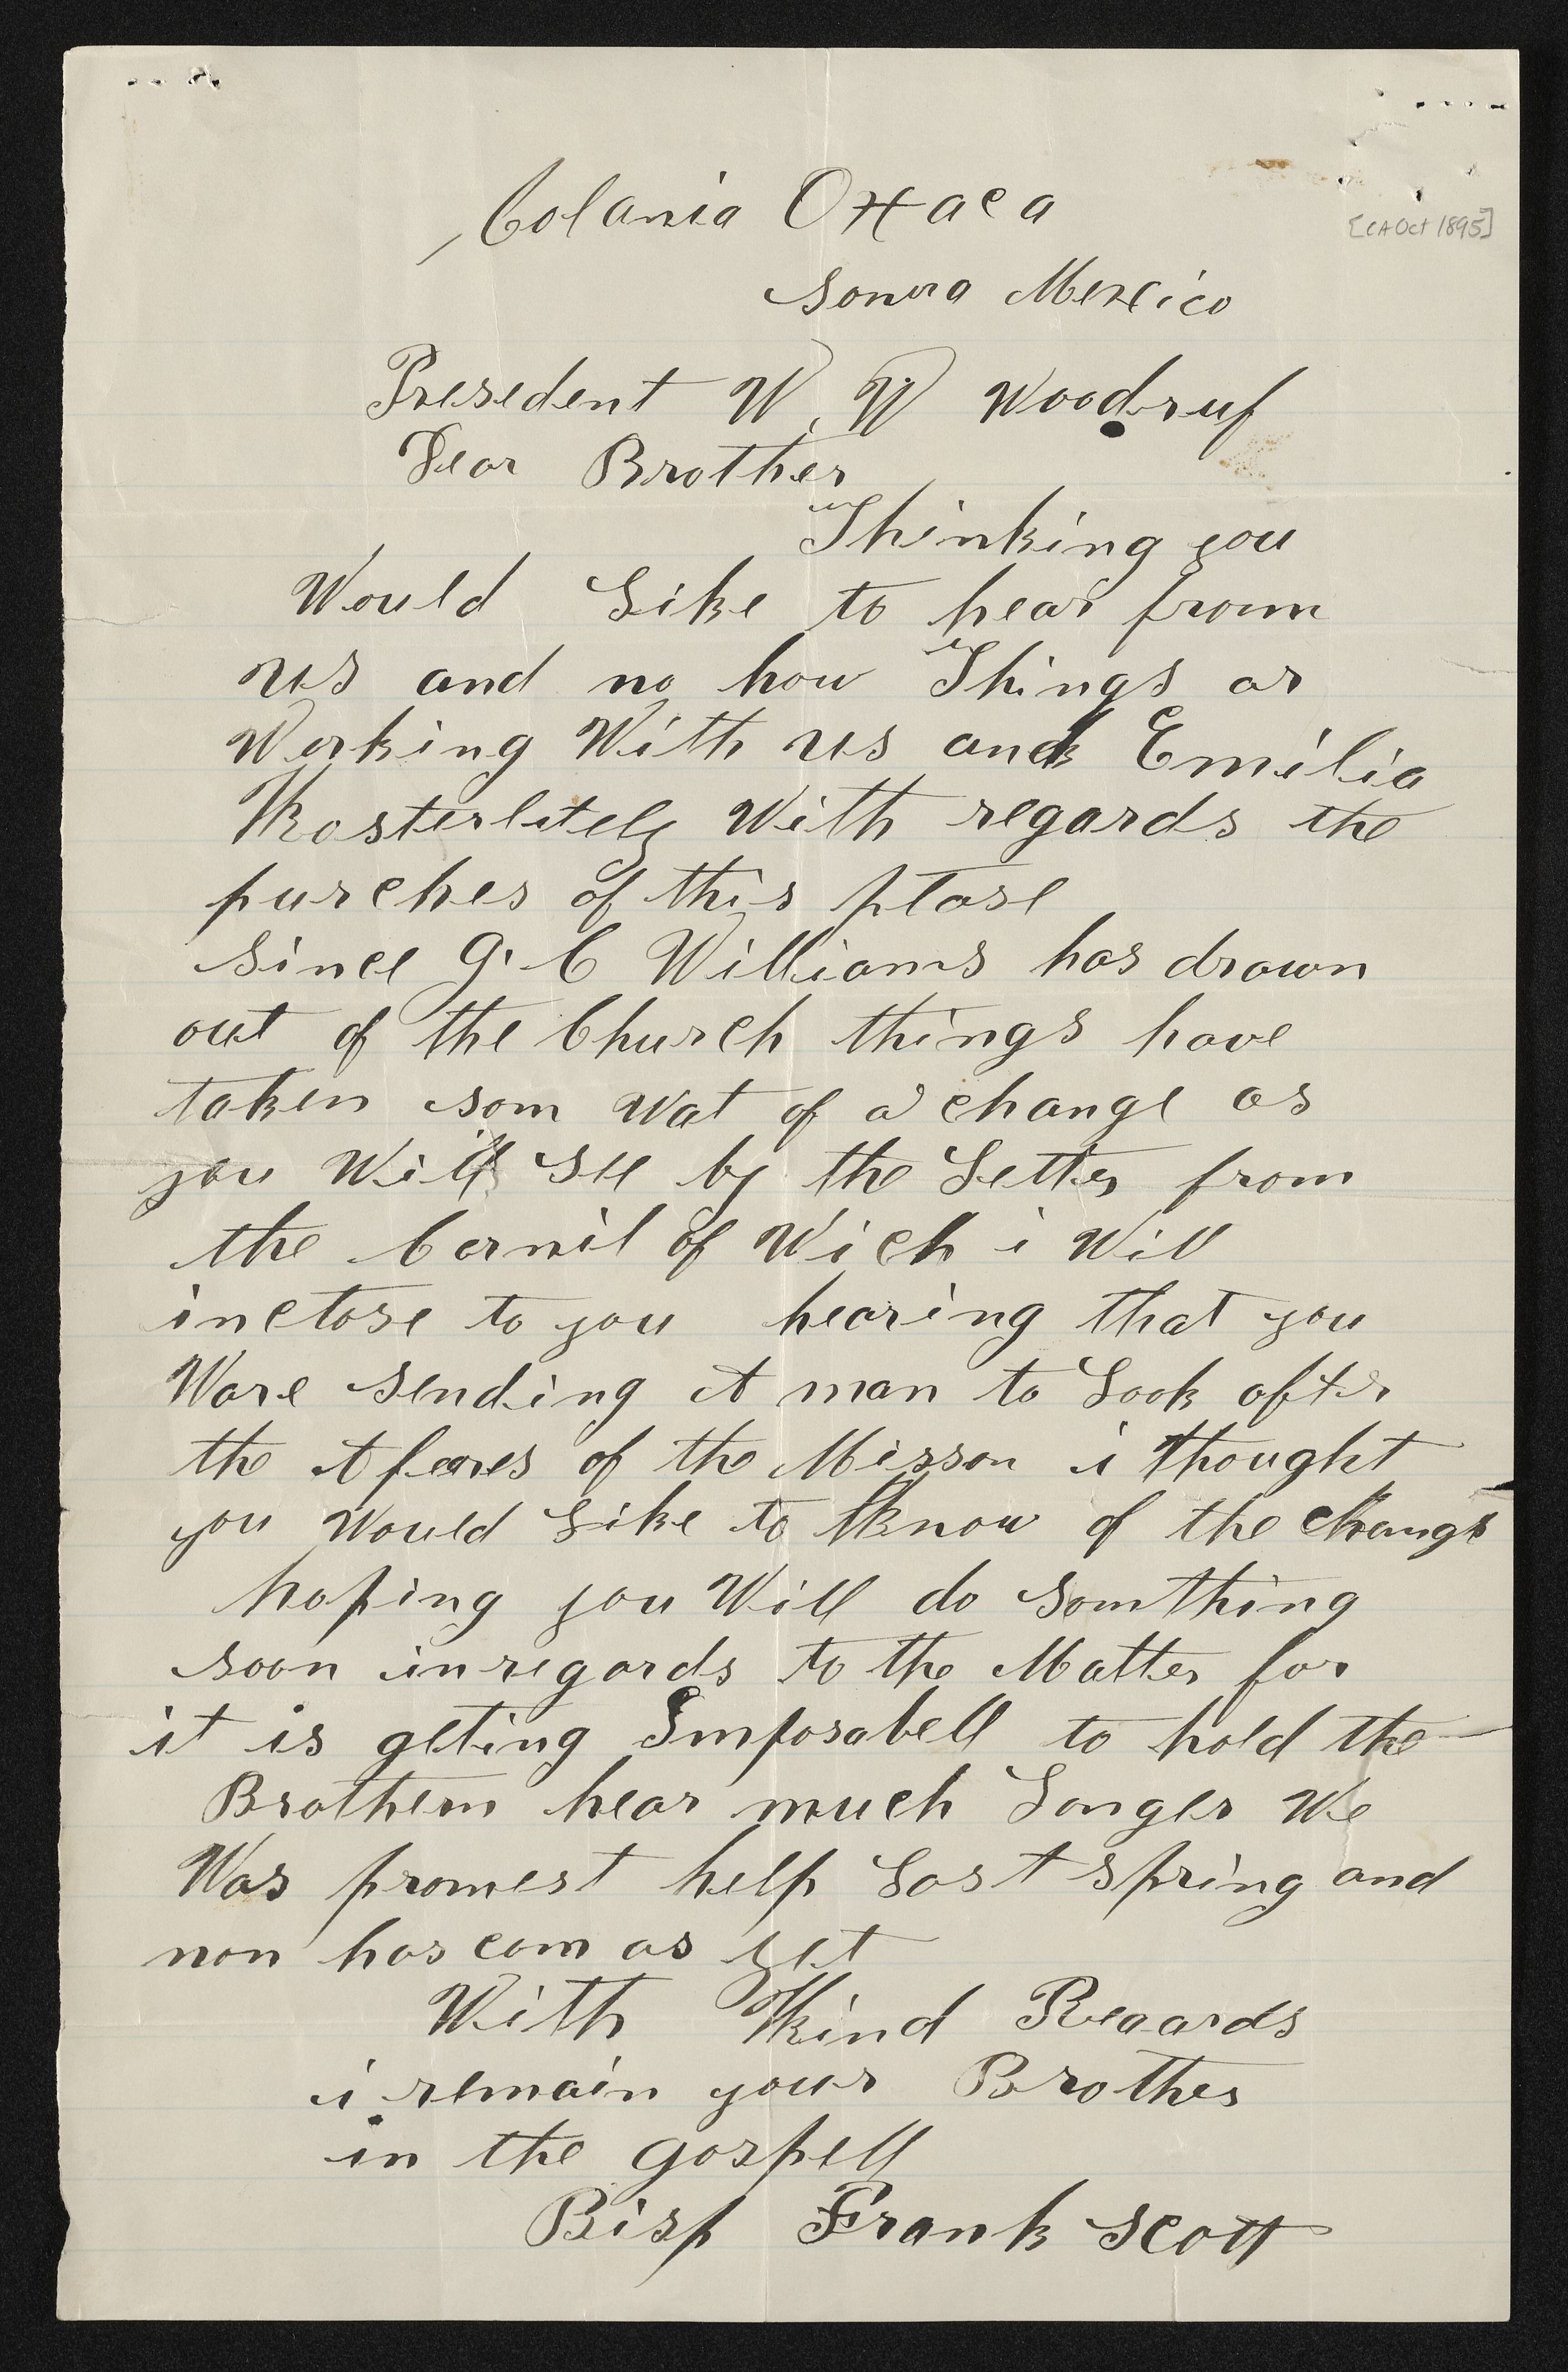 Colania Oxaca
[CA Oct 1895]
Sonora Mexico
Presedent W. W Woodruf
Dear Brother
Thinking you
Would Like to hear from
us and no how Things ar
Working With us and Emilia
Kosterlitely With regards the
purches of this plase
Since G. C Williams has drawn
out of the Church things have
taken som wat of a change as
you Will See by the Letter from
the Cornil of Wich i Will
inclose to you hearing that you
Ware Sending A man to Look after
the Afeares of the Misson i thought
you Would Like to Know of the Change
hoping you Will do Somthing
soon inregards to the Matter for
it is geting Imposabell to hold the
Brothern hear much Longer We
Was promest help Last Spring and
non has com as yet
With Kind Regards
i remain your Brother
in the gospell
Bisp Frank Scott